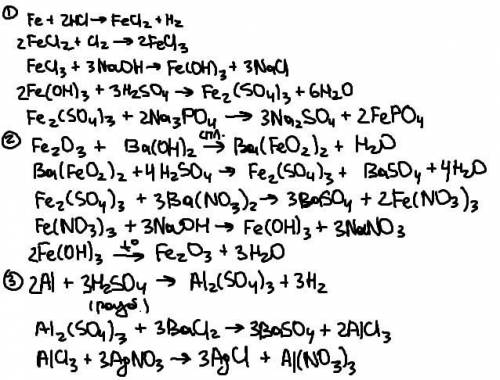 ① Fe + 2HCl → FeCl₂ + H₂
2FeCl₂ + Cl₂ → 2FeCl₃
FeCl₃ + 3NaOH → Fe(OH)₃ + 3NaCl
2Fe(OH)₃ + 3H₂SO₄ → Fe₂(SO₄)₃ + 6H₂O
Fe₂(SO₄)₃ + 2Na₃PO₄ → 3Na₂SO₄ + 2FePO₄
② Fe₂O₃ + Ba(OH)₂ спл.→ Ba(FeO₂)₂ + H₂O
Ba(FeO₂)₂ + 4H₂SO₄ → Fe₂(SO₄)₃ + BaSO₄ + 4H₂O
Fe₂(SO₄)₃ + 3Ba(NO₃)₂ → 3BaSO₄ + 2Fe(NO₃)₃
Fe(NO₃)₃ + 3NaOH → Fe(OH)₃ + 3NaNO₃
2Fe(OH)₃ t°→ Fe₂O₃ + 3H₂O
③ 2Al + 3H₂SO₄ → Al₂(SO₄)₃ + 3H₂
(разб.)
Al₂(SO₄)₃ + 3BaCl₂ → 3BaSO₄ + 2AlCl₃
AlCl₃ + 3AgNO₃ → 3AgCl + Al(NO₃)₃